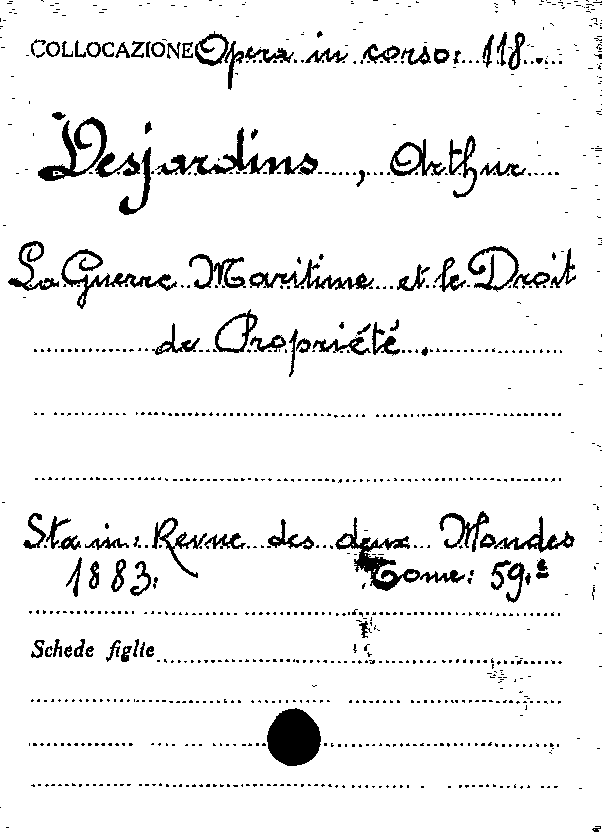 COLLOCAZIONE Opera in corso: 118.
Desjardins, Arthur
La Guerre Maritime et le Droit
de Propriété.
Sta in: Revue des deux Mondes
1883. Tome: 59.e
Schede figlie